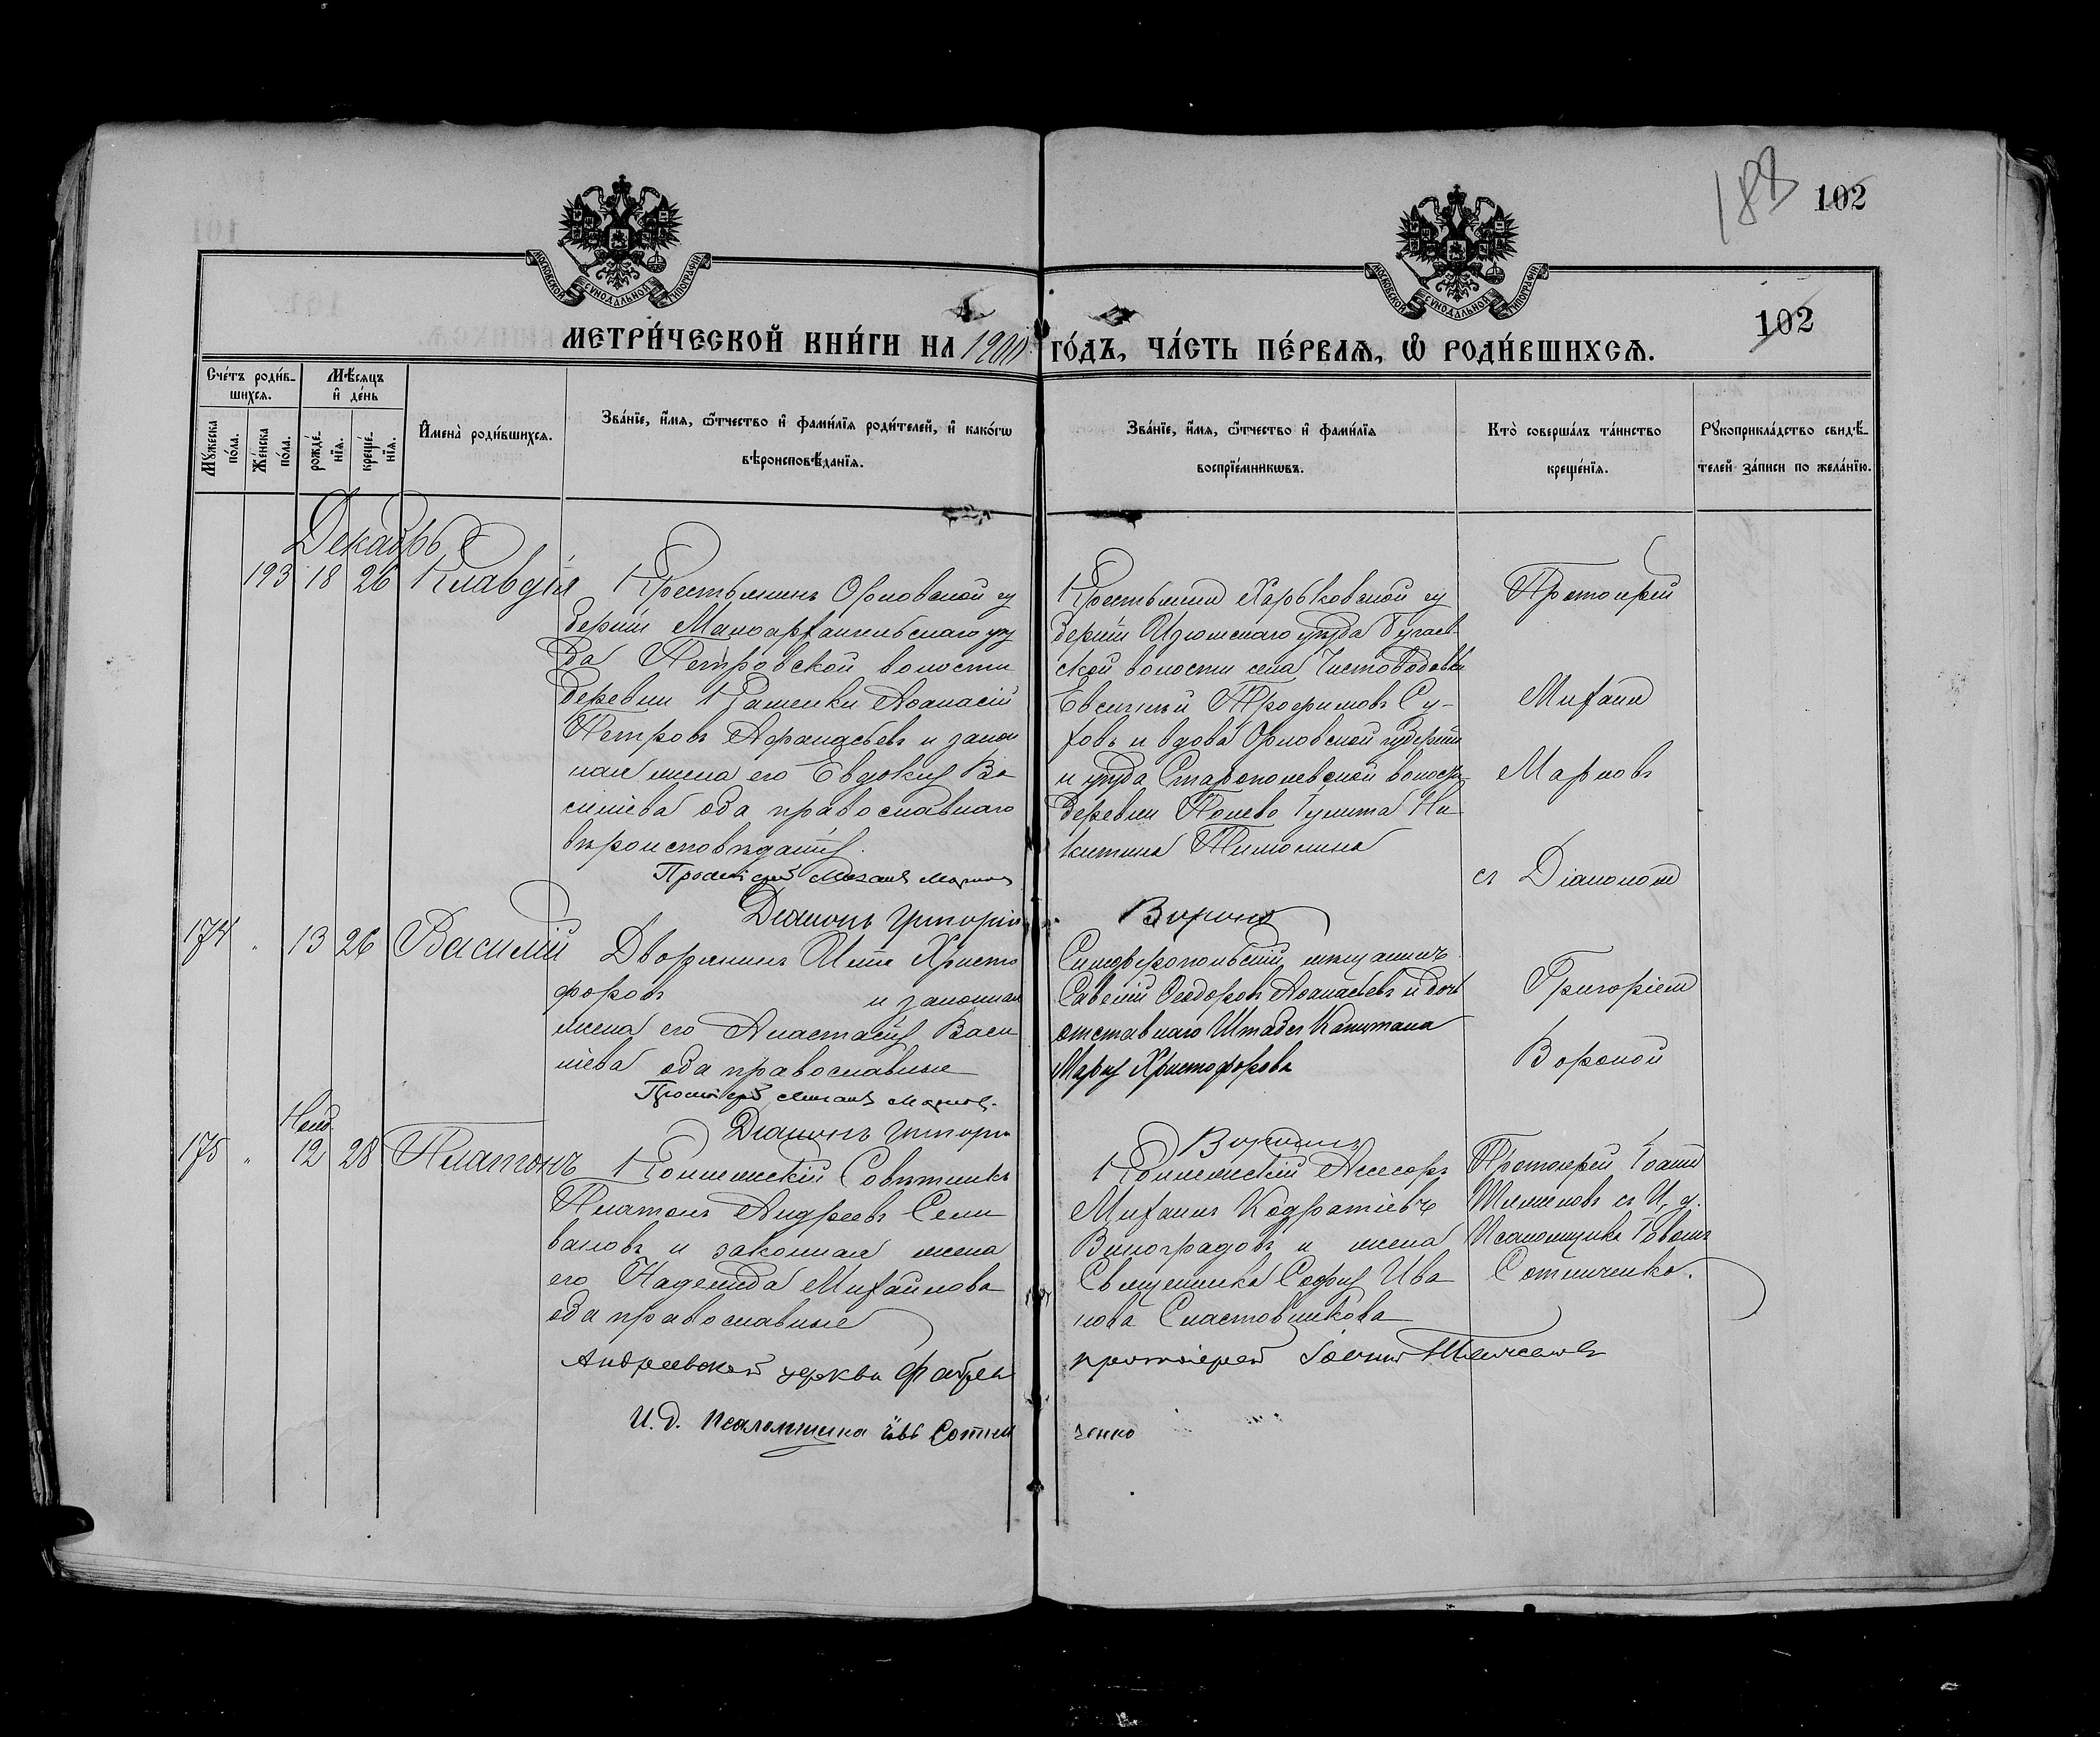 188
102
102
МОСКОВСКОЙ СѴНОДАЛЬНОЙ ТИПОГРАФІИ
МОСКОВСКОЙ СѴНОДАЛЬНОЙ ТИПОГРАФІИ
МЕТРИ́ЧЕСКОЙ КНИ́ГИ НА 1900 ГО́ДЪ, ЧА́СТЬ ПЕ́РВАЯ, Ѡ РОДИ́ВШИХСЯ.
Сче́тъ роди́в-
шихся.
Мѣ́сяцъ
и҆ де́нь
Мꙋ́жеска
по́ла.
Же́нска
по́ла.
рожде́-
нїя.
креще́-
нїя.
И҆мена̀ роди́вшихся.
Зва́нїе, и҆́мя, ѻ҆́тчество и҆ фами́лїя роди́телей, и҆ како́гѡ
вѣроисповѣ́данїя.
Зва́нїе, и҆́мя, ѻ҆́тчество и҆ фами́лїя
воспрїе́мникѡвъ.
Кто̀ соверша́лъ та́инство
креще́нїя.
Рꙋкоприкла́дство свидѣ́-
телей за́писи по жела́нїю.
Декабрь
193 18 26 Клавдія
Крестьянинъ Орловской гу
берніи Малоархангельскаго уѣз
да Петровской волости
деревни Аѳанасій
Петровъ Аѳанасьевъ и закон
ная жена его Евдокія Ва
сильева оба православнаго
вѣроисповѣданія.
Протоіерей Михаилъ Марковъ
Діаконъ Григорій Воронъ
Крестьянинъ Харьковской гу
берніи Изюмскаго уѣзда
ской волости села
Евсигній Трофимовъ Су-
ховъ и вдова Орловской губерніи
и уѣзда волости
деревни Ни
китина
Протоіерей
Михаилъ
Марковъ
съ Діакономъ
174 " 13 26 Василій
Дворянинъ Илья Христо
форовъ и законная
жена его Анастасія Васи
льева оба православные
Протоіерей Михаилъ Марковъ.
Діаконъ Григорій Воронъ
Симферопольскій мѣщанинъ
Савелій Ѳеодоровъ Аѳанасьевъ и дочь
отставнаго Штабсъ Капитана
Марія Христофорова
Григоріемъ
Вороной
Нояб.
175 " 12 28 Платонъ
Коллежскій Совѣтникъ
Платонъ Андреевъ Сели
вановъ и законная жена
его Надежда Михайлова
оба православные
Коллежскій Ассесоръ
Михаилъ Кодратіевъ
Виноградовъ и жена
Священника Софія Ива
нова Сластовникова
Протоіерей Іоаннъ
съ И. д.
Псаломщика
Сотниченко.
Андреевской церкви протоіерей Іоаннъ
И. д. Псаломщика Сотни ченко